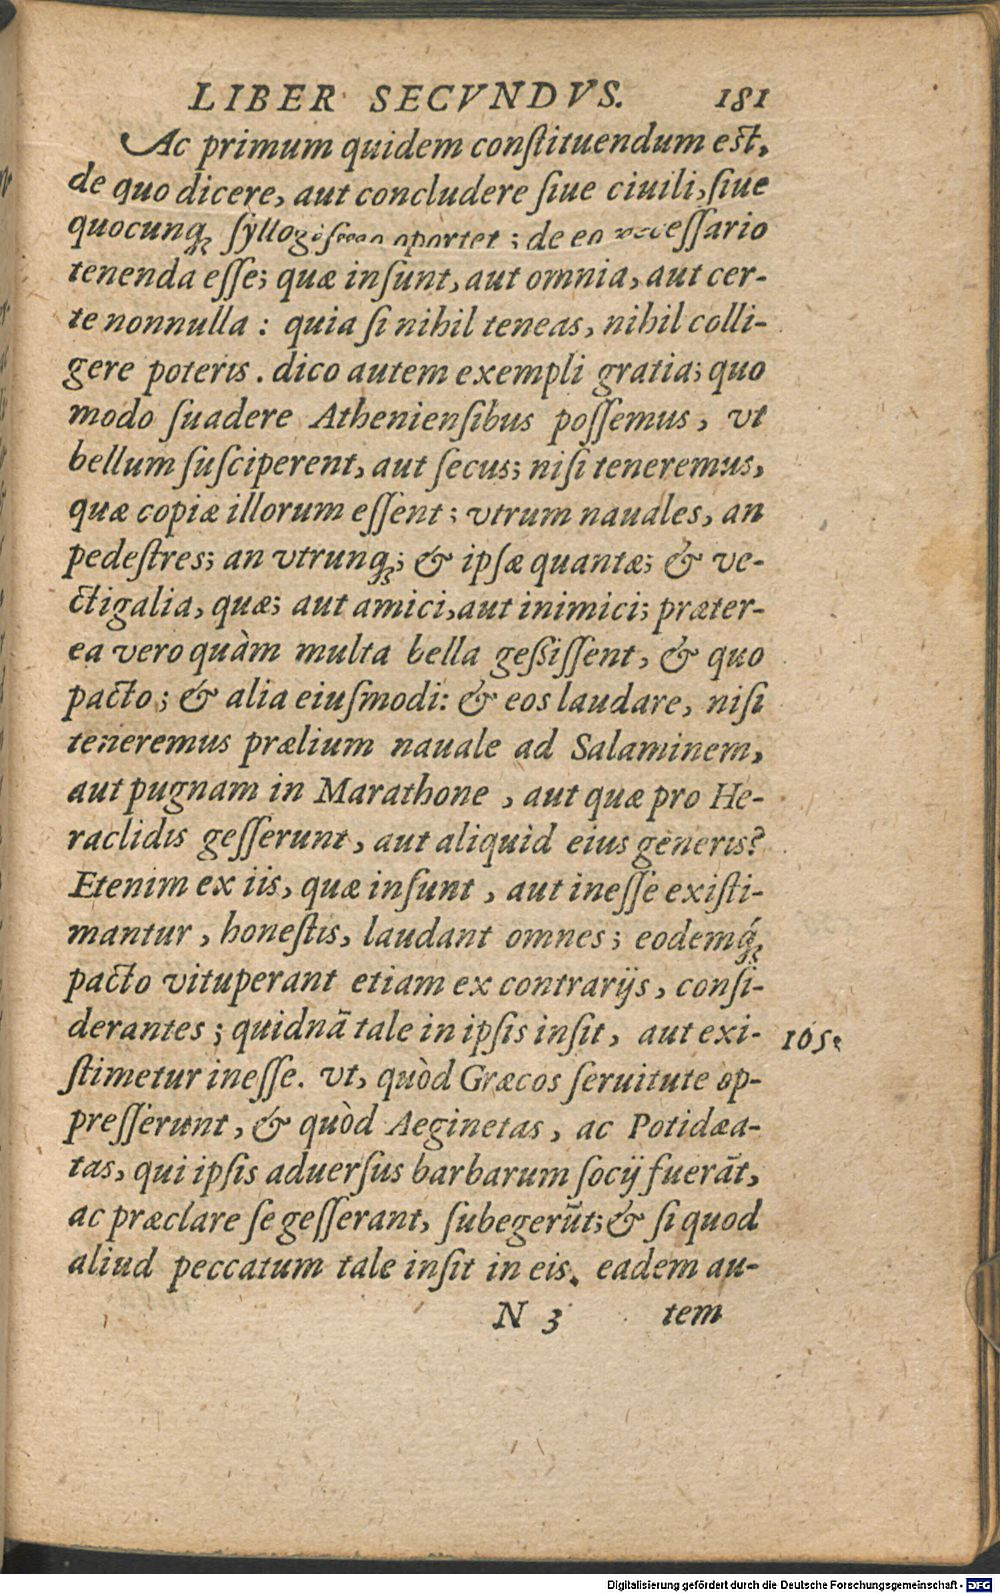 LIBER SECVNDVS. 181
Ac primum quidem conſtituendum est,
de quo dicere, aut concludere ſiue ciuili, ſiue
quocunq; oportet; de eo
tenenda eſſe; quæ inſunt, aut omnia, aut cer-
te nonnulla: quia ſi nihil teneas, nihil colli-
gere poteris. dico autem exempli gratia; quo
modo ſuadere Athenienſibus poſſemus, vt
bellum ſuſciperent, aut ſecus; niſi teneremus,
quæ copiæ illorum eſſent; vtrum nauales, an
pedeſtres; an vtrunq; & ipſæ quantæ; & ve-
ctigalia, quæ; aut amici, aut inimici; præter-
ea vero quàm multa bella geßiſſent, & quo
pacto; & alia eiuſmodi: & eos laudare, niſi
teneremus prælium nauale ad Salaminem,
aut pugnam in Marathone, aut quæ pro He-
raclidis geſſerunt, aut aliquid eius generis?
Etenim ex iis, quæ inſunt, aut ineſſe exiſti-
mantur, honeſtis, laudant omnes; eodemq́;
pacto vituperant etiam ex contrarijs, conſi-
derantes; quidnã tale in ipſis inſit, aut exi-
ſtimetur ineſſe. vt, quòd Græcos ſeruitute op-
preſſerunt, & quòd Aeginetas, ac Potidæa-
tas, qui ipſis aduerſus barbarum ſocij fuerãt,
ac præclare ſe geſſerant, ſubegerũt; & ſi quod
aliud peccatum tale inſit in eis. eadem au-
105.
N 3 tem
Digitalisierung gefördert durch die Deutsche Forschungsgemeinschaft - DFG